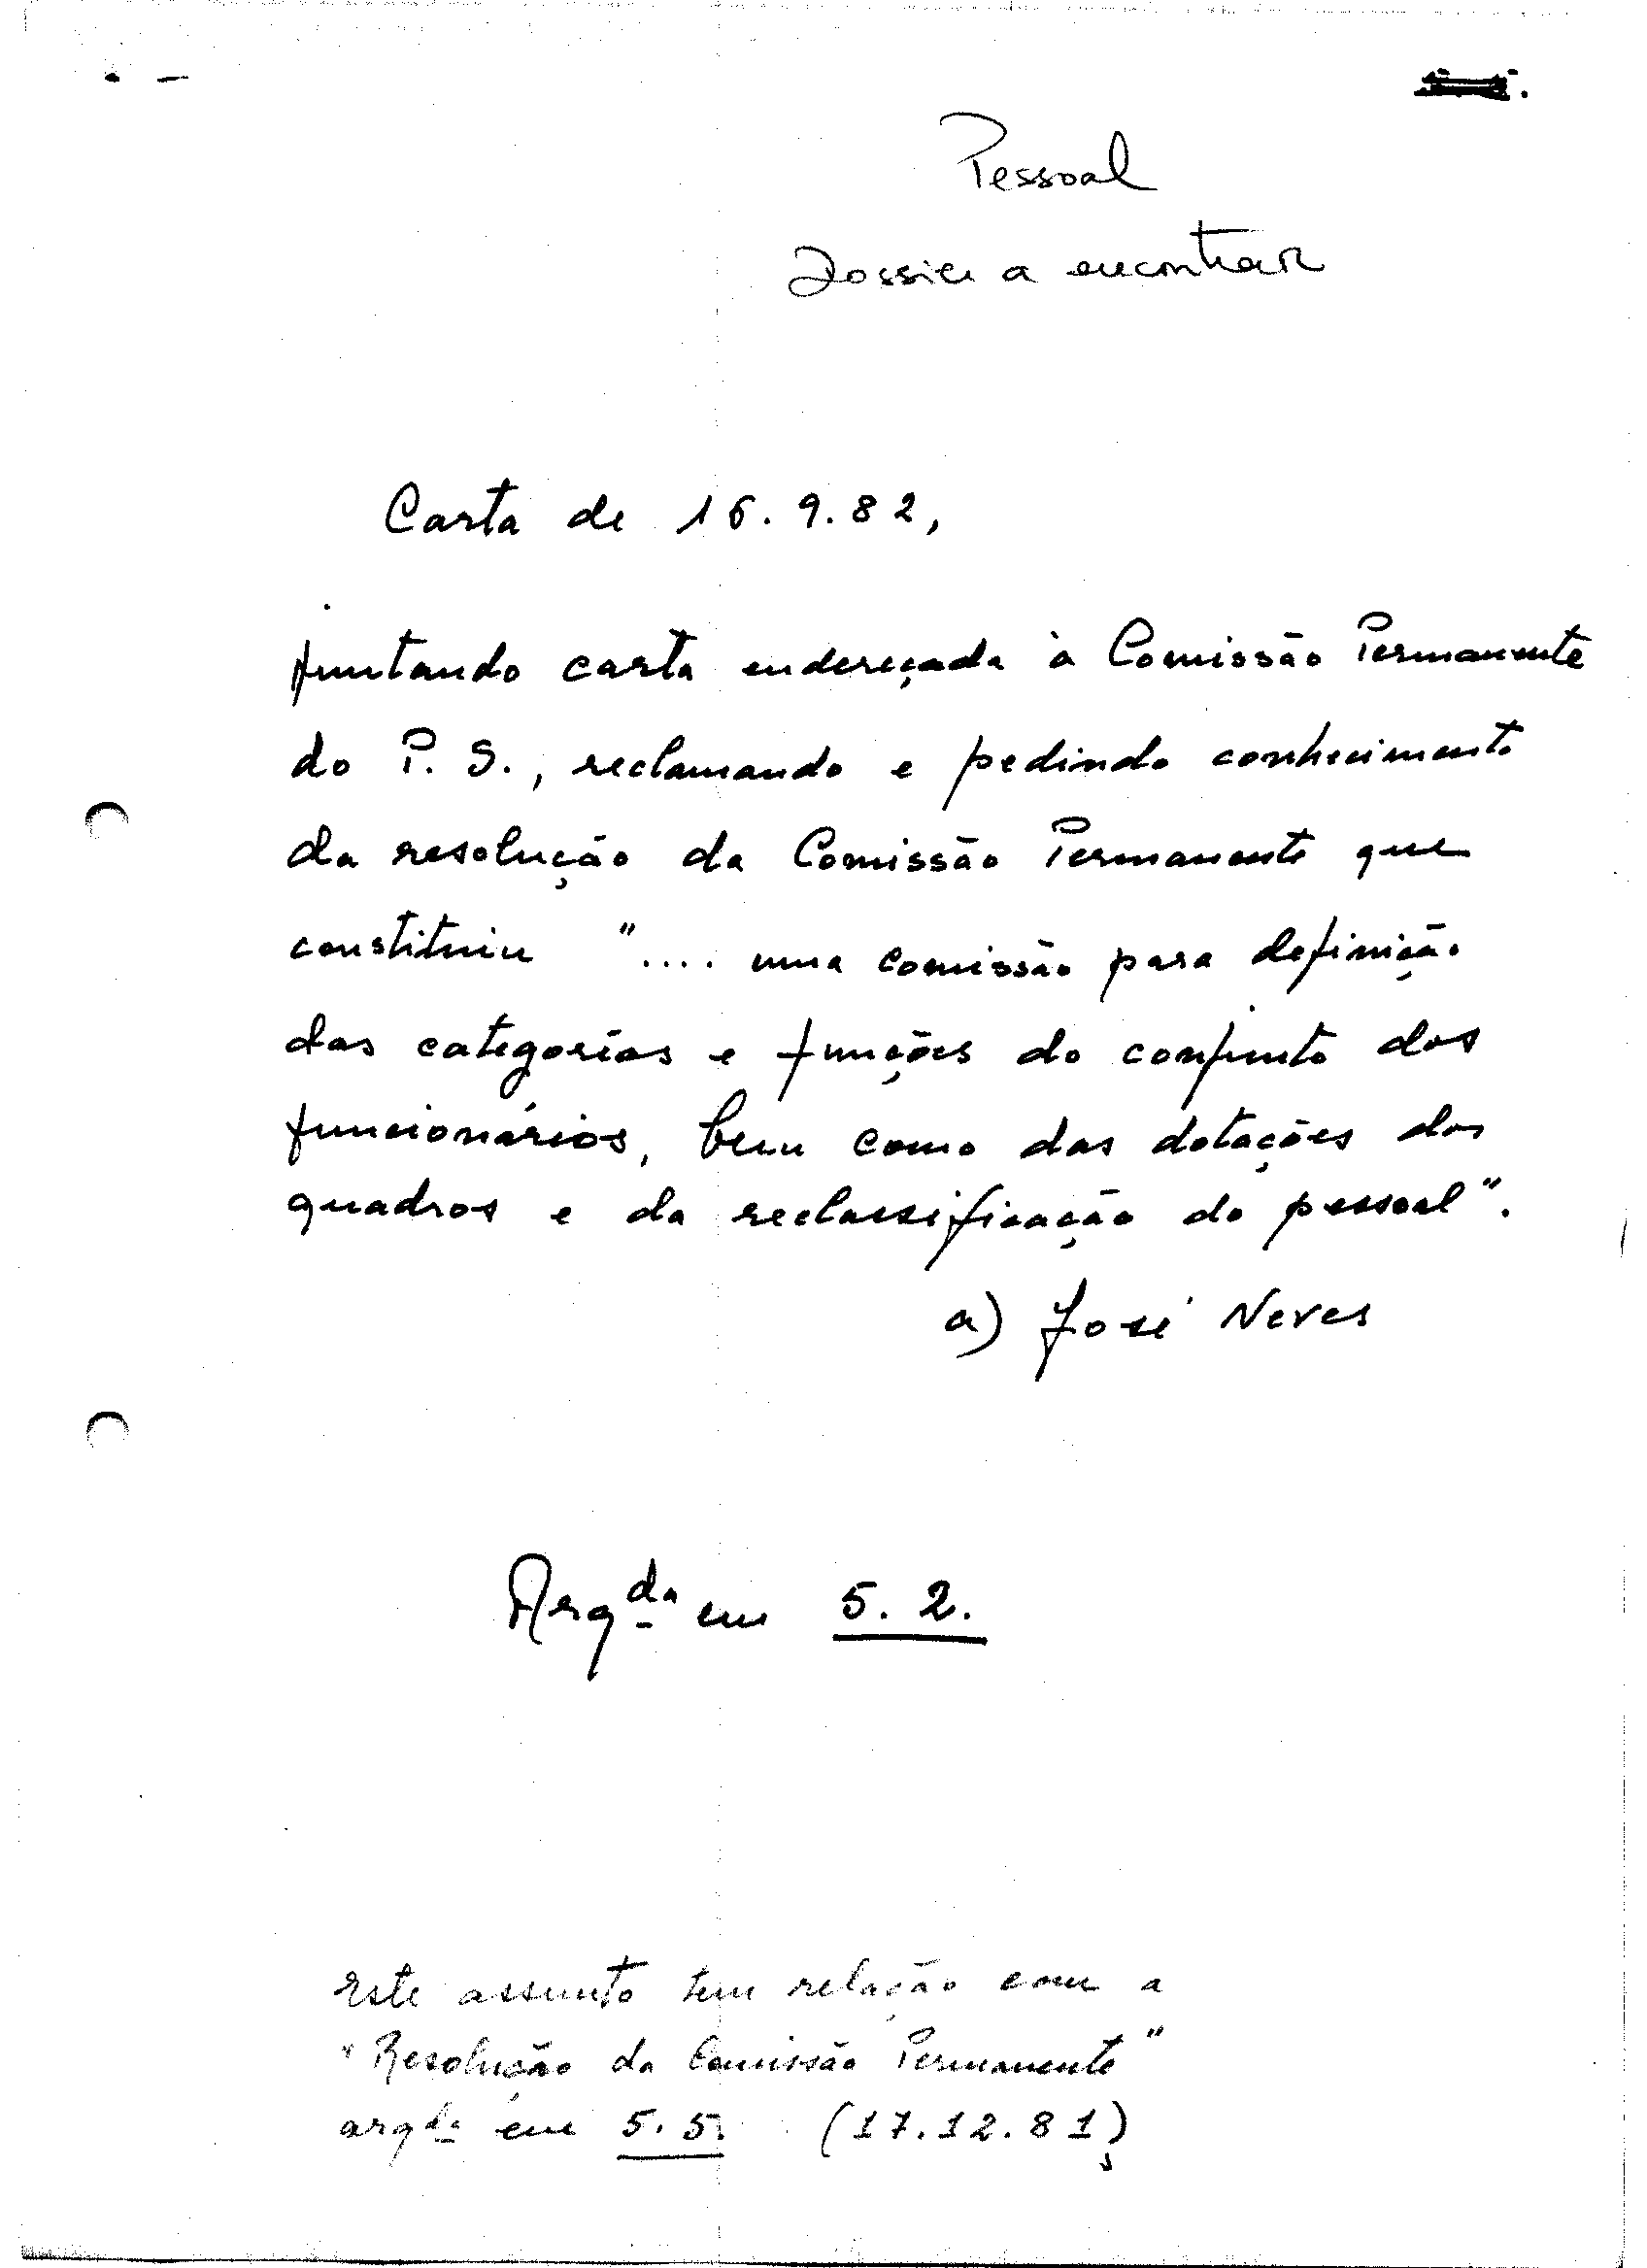 Pessoal
Dossier a encontrar
Carta de 16.9.82,
juntando carta endereçada à Comissão Permanente
do P. S., reclamando e pedindo conhecimento
da resolução da Comissão Permanente que
constituiu ".... uma comissão para definição
das categorias e funções do conjunto dos
funcionários, bem como das dotações dos
quadros e da reclassificação do pessoal".
a) José Neves
Arqda em 5. 2.
Este assunto tem relação com a
"Resolução da Comissão Permanente"
arqda em 5.5. (17.12.81)